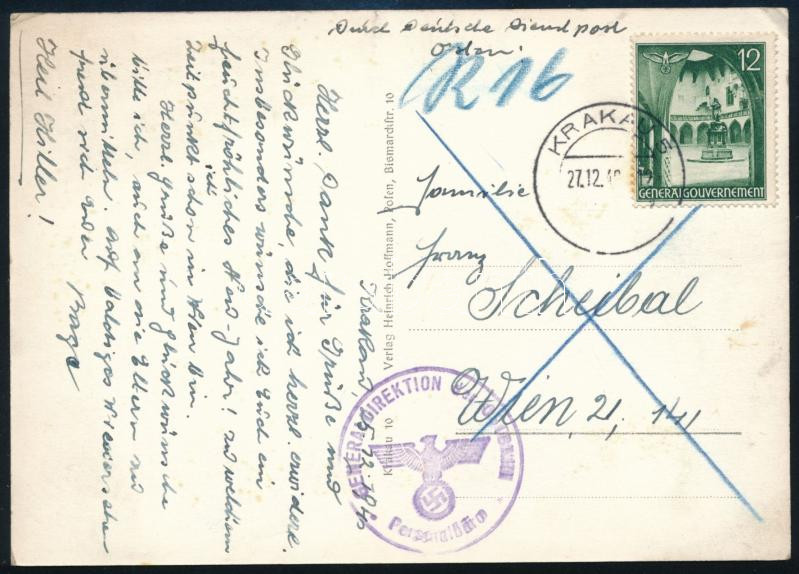 Durch Deutsche Dienstpost
Osten!
R 16
12
GENERALGOUVERNEMENT
KRAKAU
27.12.40
Familie
Franz
Scheibal
Wien, 21, 141
Krakau 10 Verlag Heinrich Hoffmann, Posen, Bismarckstr 10
GENERALDIREKTION
Personalbüro
Krakau
Herzl. Dank für Grüße und
Glückwünsche, die ich herzl. erwidere.
Insbesonders wünsche ich Euch ein
feuchtfröhliches Neu-Jahr! zu welchem
ich
Zeitpunkt schon in Wien bin.
Herzl. Grüße und Glückwünsche
bitte ich, auch an die Eltern zu
übermitteln. Auf baldiges Wiedersehen
freut sich Euer
Heil Hitler!